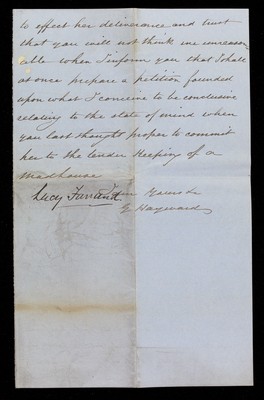 to effect her deliverance and trust
that you will not think me unreason
able when I inform you that I shall
at once prepare a petition founded
upon what I conceive to be conclusive
relating to the state of mind when
you last thought proper to commit
her to the tender keeping of a
madhouse
Lucy Farrand.
G Hayward